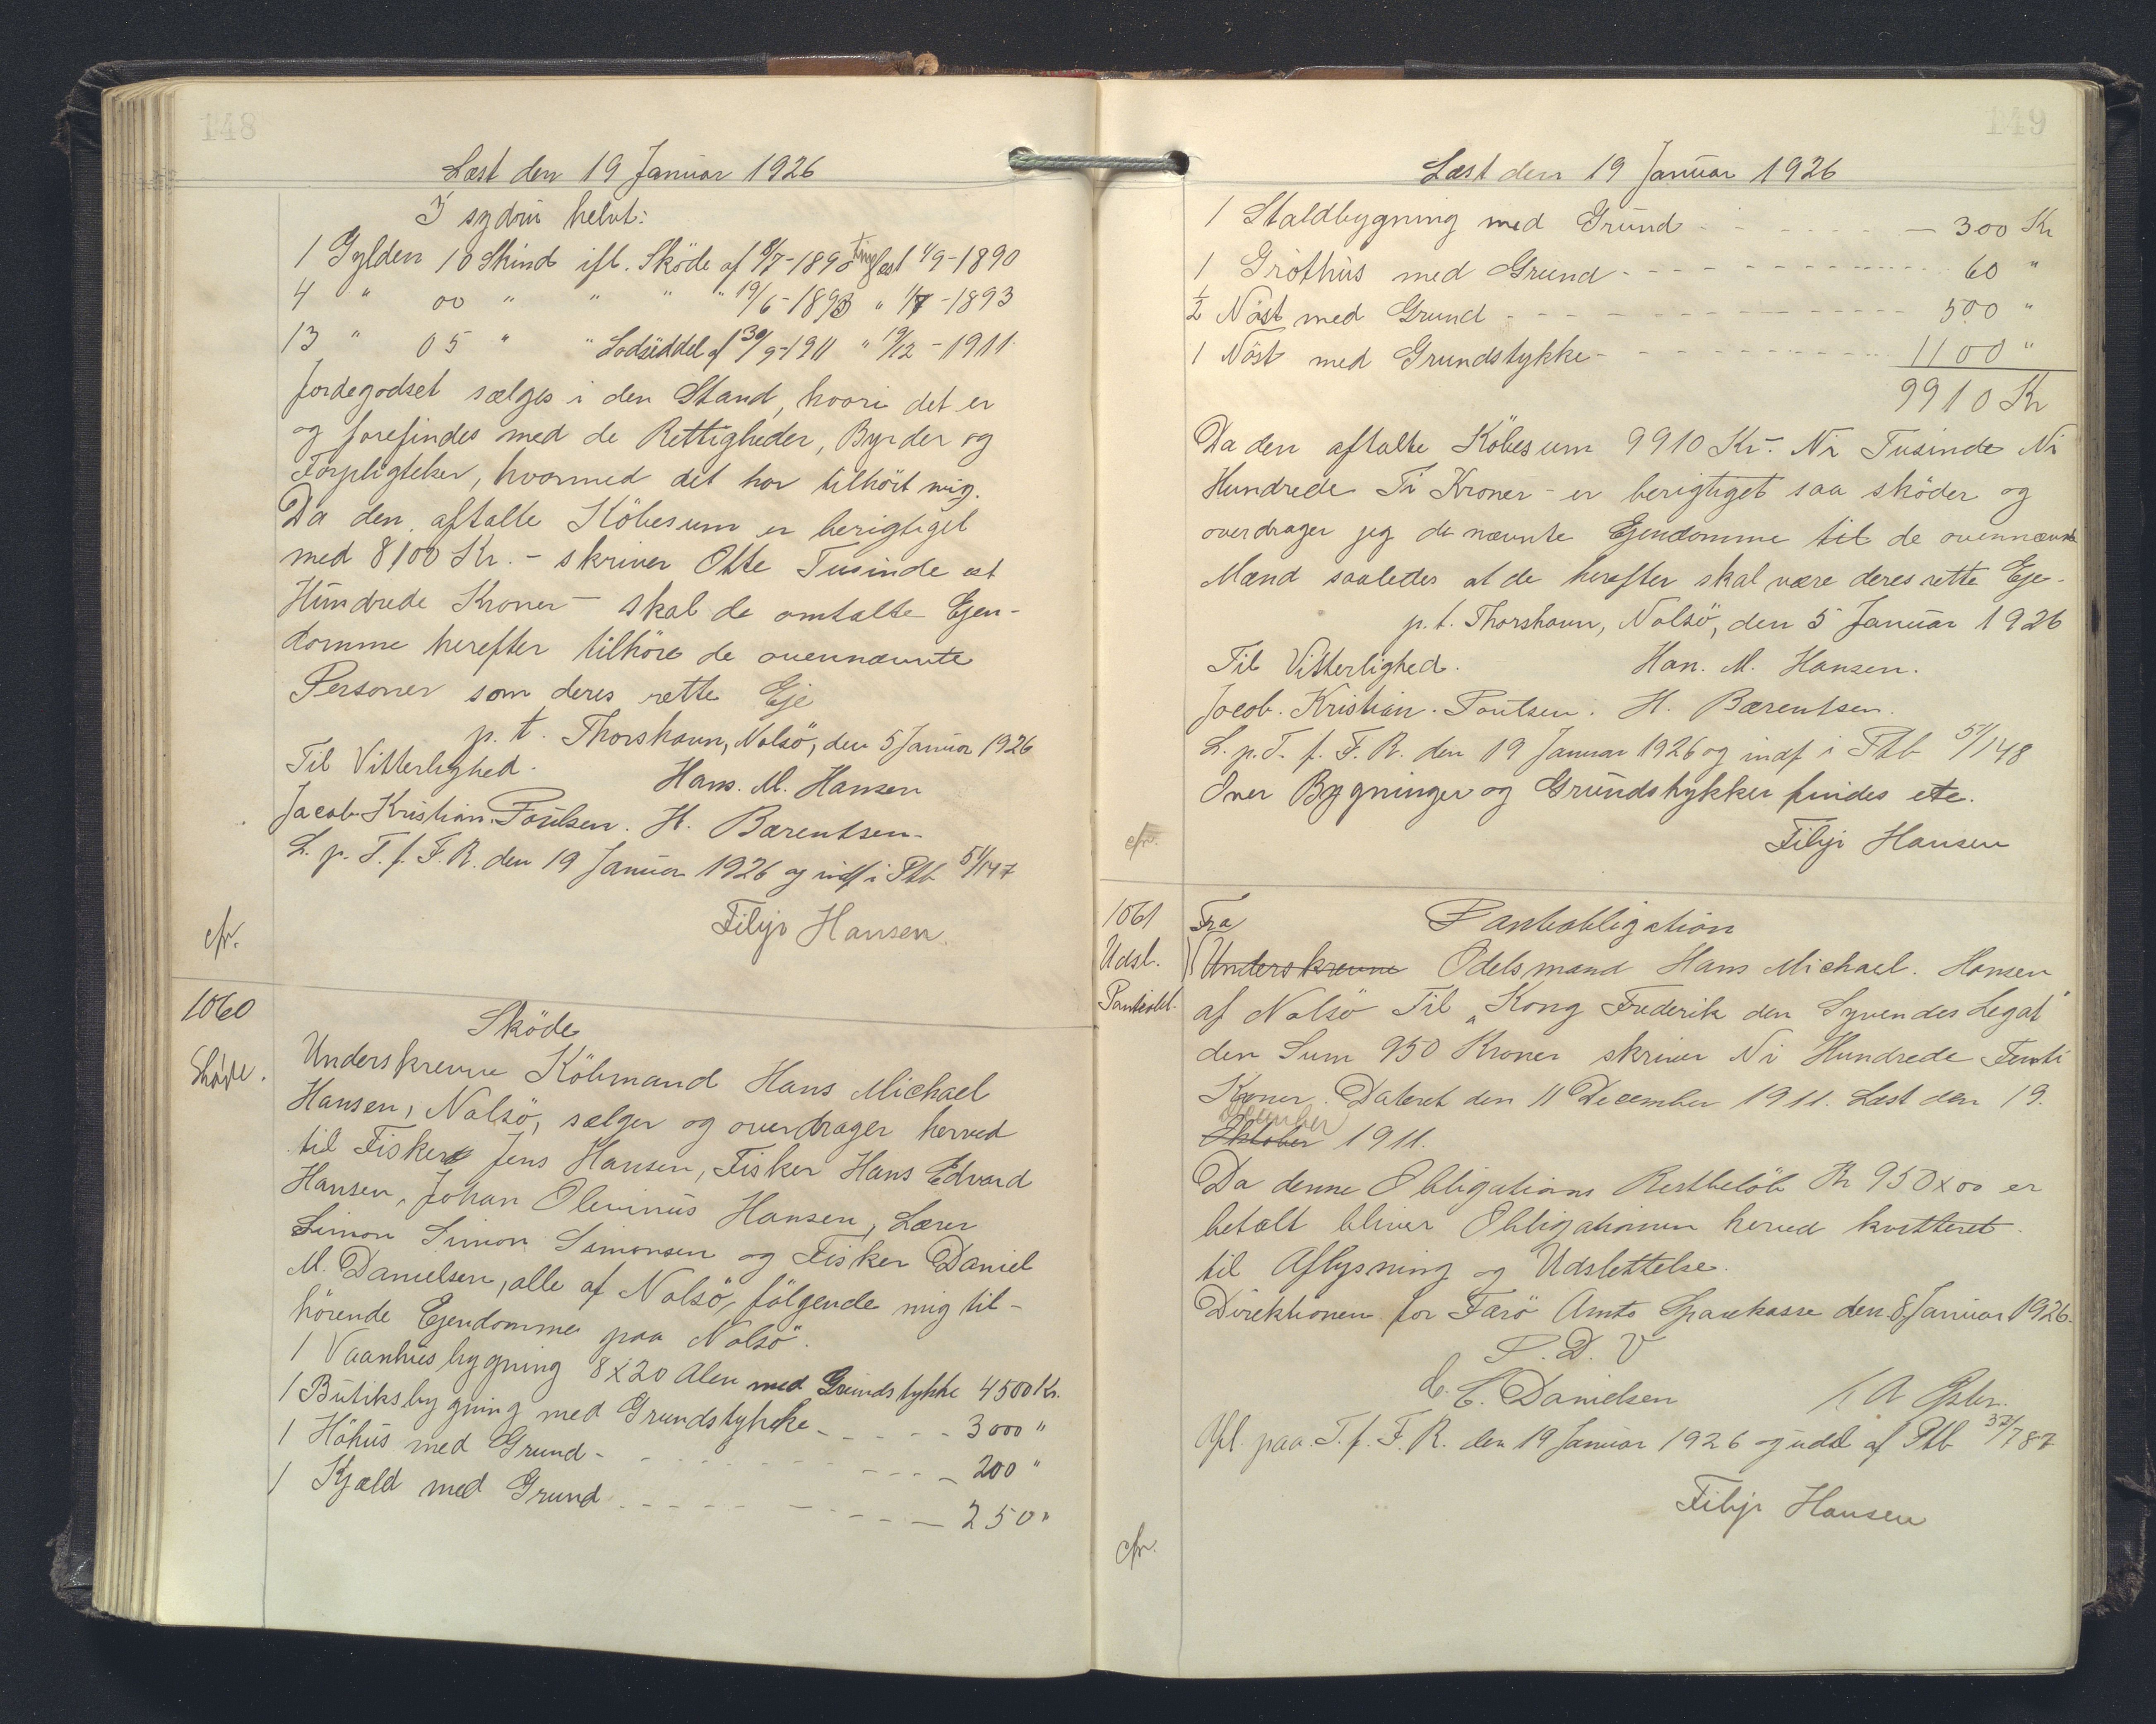 148
Læst den 19 Januar 1926
I sydri helvt:
1 Gylden 10 Skind ifl. Sköde af 8/7-1890 Tinglæst 1/9-1890
4 " 00 " " " " 19/6-1893 " 1/7-1893
13 " 05 " " Lodseddel af 30/9-1911 " 19/12-1911.
Jordegodset sælges i den Stand, hvori det er
og forefindes med de Rettigheder, Byrder og
Forpligtelser, hvormed det har tilhört mig.
Da den aftalte Köbesum er berigtiget
med 8100 Kr. - skriver Otte Tusinde et
Hundrede Kroner - skal de omtalte Ejen-
domme herefter tilhöre de ovennævnte
Personer som deres rette Eje
p. t. Thorshavn, Nolsö, den 5 Januar 1926
Til Vitterlighed. Hans. M. Hansen
Jacob Kristian Poulsen. H. Bærentsen.
L. p. T. f. F. R. den 19 Januar 1926 og indf i Ptb 51/147
Filip Hansen.
cfr.
1060
Sköde
Sköde.
Underskrevne Köbmand Hans Michael
Hansen, Nolsö, sælger og overdrager herved
til Fisker Jens Hansen, Fisker Hans Edvard
Hansen, Johan Olevinus Hansen, Lærer
Simon Simon Simonsen og Fisker Daniel
M. Danielsen, alle af Nolsö, fölgende mig til-
hörende Ejendomme paa Nolsö.
1 Vaanhusbygning 8x20 Alen med Grundstykke 4500 Kr.
1 Butiksbygning med Grundstykke - - - - - 3000 "
1 Höhus med Grund - - - - - - - - - 200 "
1 Kjæld med Grund - - - - - - - - - 250 "
149
Læst den 19 Januar 1926
1 Staldbygning med Grund - - - - - - - 300 Kr
1 Gróthús med Grund - - - - - - - - - 60 "
1/2 Nöst med Grund - - - - - - - - - 500 "
1 Nöst med Grundstykke - - - - - - - - 1100 "
9910 Kr
Da den aftalte Köbesum 9910 Kr.- Ni Tusinde Ni
Hundrede Ti Kroner - er berigtiget saa sköder og
overdrager jeg de nævnte Ejendomme til de ovennævnte
Mænd saaledes at de herefter skal være deres rette Eje-
p. t. Thorshavn, Nolsö, den 5 Januar 1926
Til Vitterlighed. Han. M. Hansen.
Jacob. Kristian. Poulsen. H. Bærentsen.
L. p. T. f. F. R. den 19 Januar 1926 og indf i Ptb 51/148
Over Bygninger og Grundstykker findes ete.
Filip Hansen
cfr.
1061 Fra Panteobligation
Udsl. Underskrevne Odelsmand Hans Michael. Hansen
Panteobl. af Nolsö Til "Kong Frederik den Syvendes Legat"
den Sum 950 Kroner skriver Ni Hundrede Femti
Kroner. Dateret den 11 December 1911. Læst den 19.
December
Oktober 1911.
Da denne Obligations Restbelöb Kr 950x00 er
betalt bliver Obligationen herved kvitteret
til Aflysning og Udslettelse.
Direktionen for Færö Amts Sparekasse den 8 Januar 1926.
P. D. V
C. C. Danielsen
Afl. paa. T. f. F. R. den 19 Januar 1926 og udsl af Ptb 37/787
Filip Hansen
cfr.